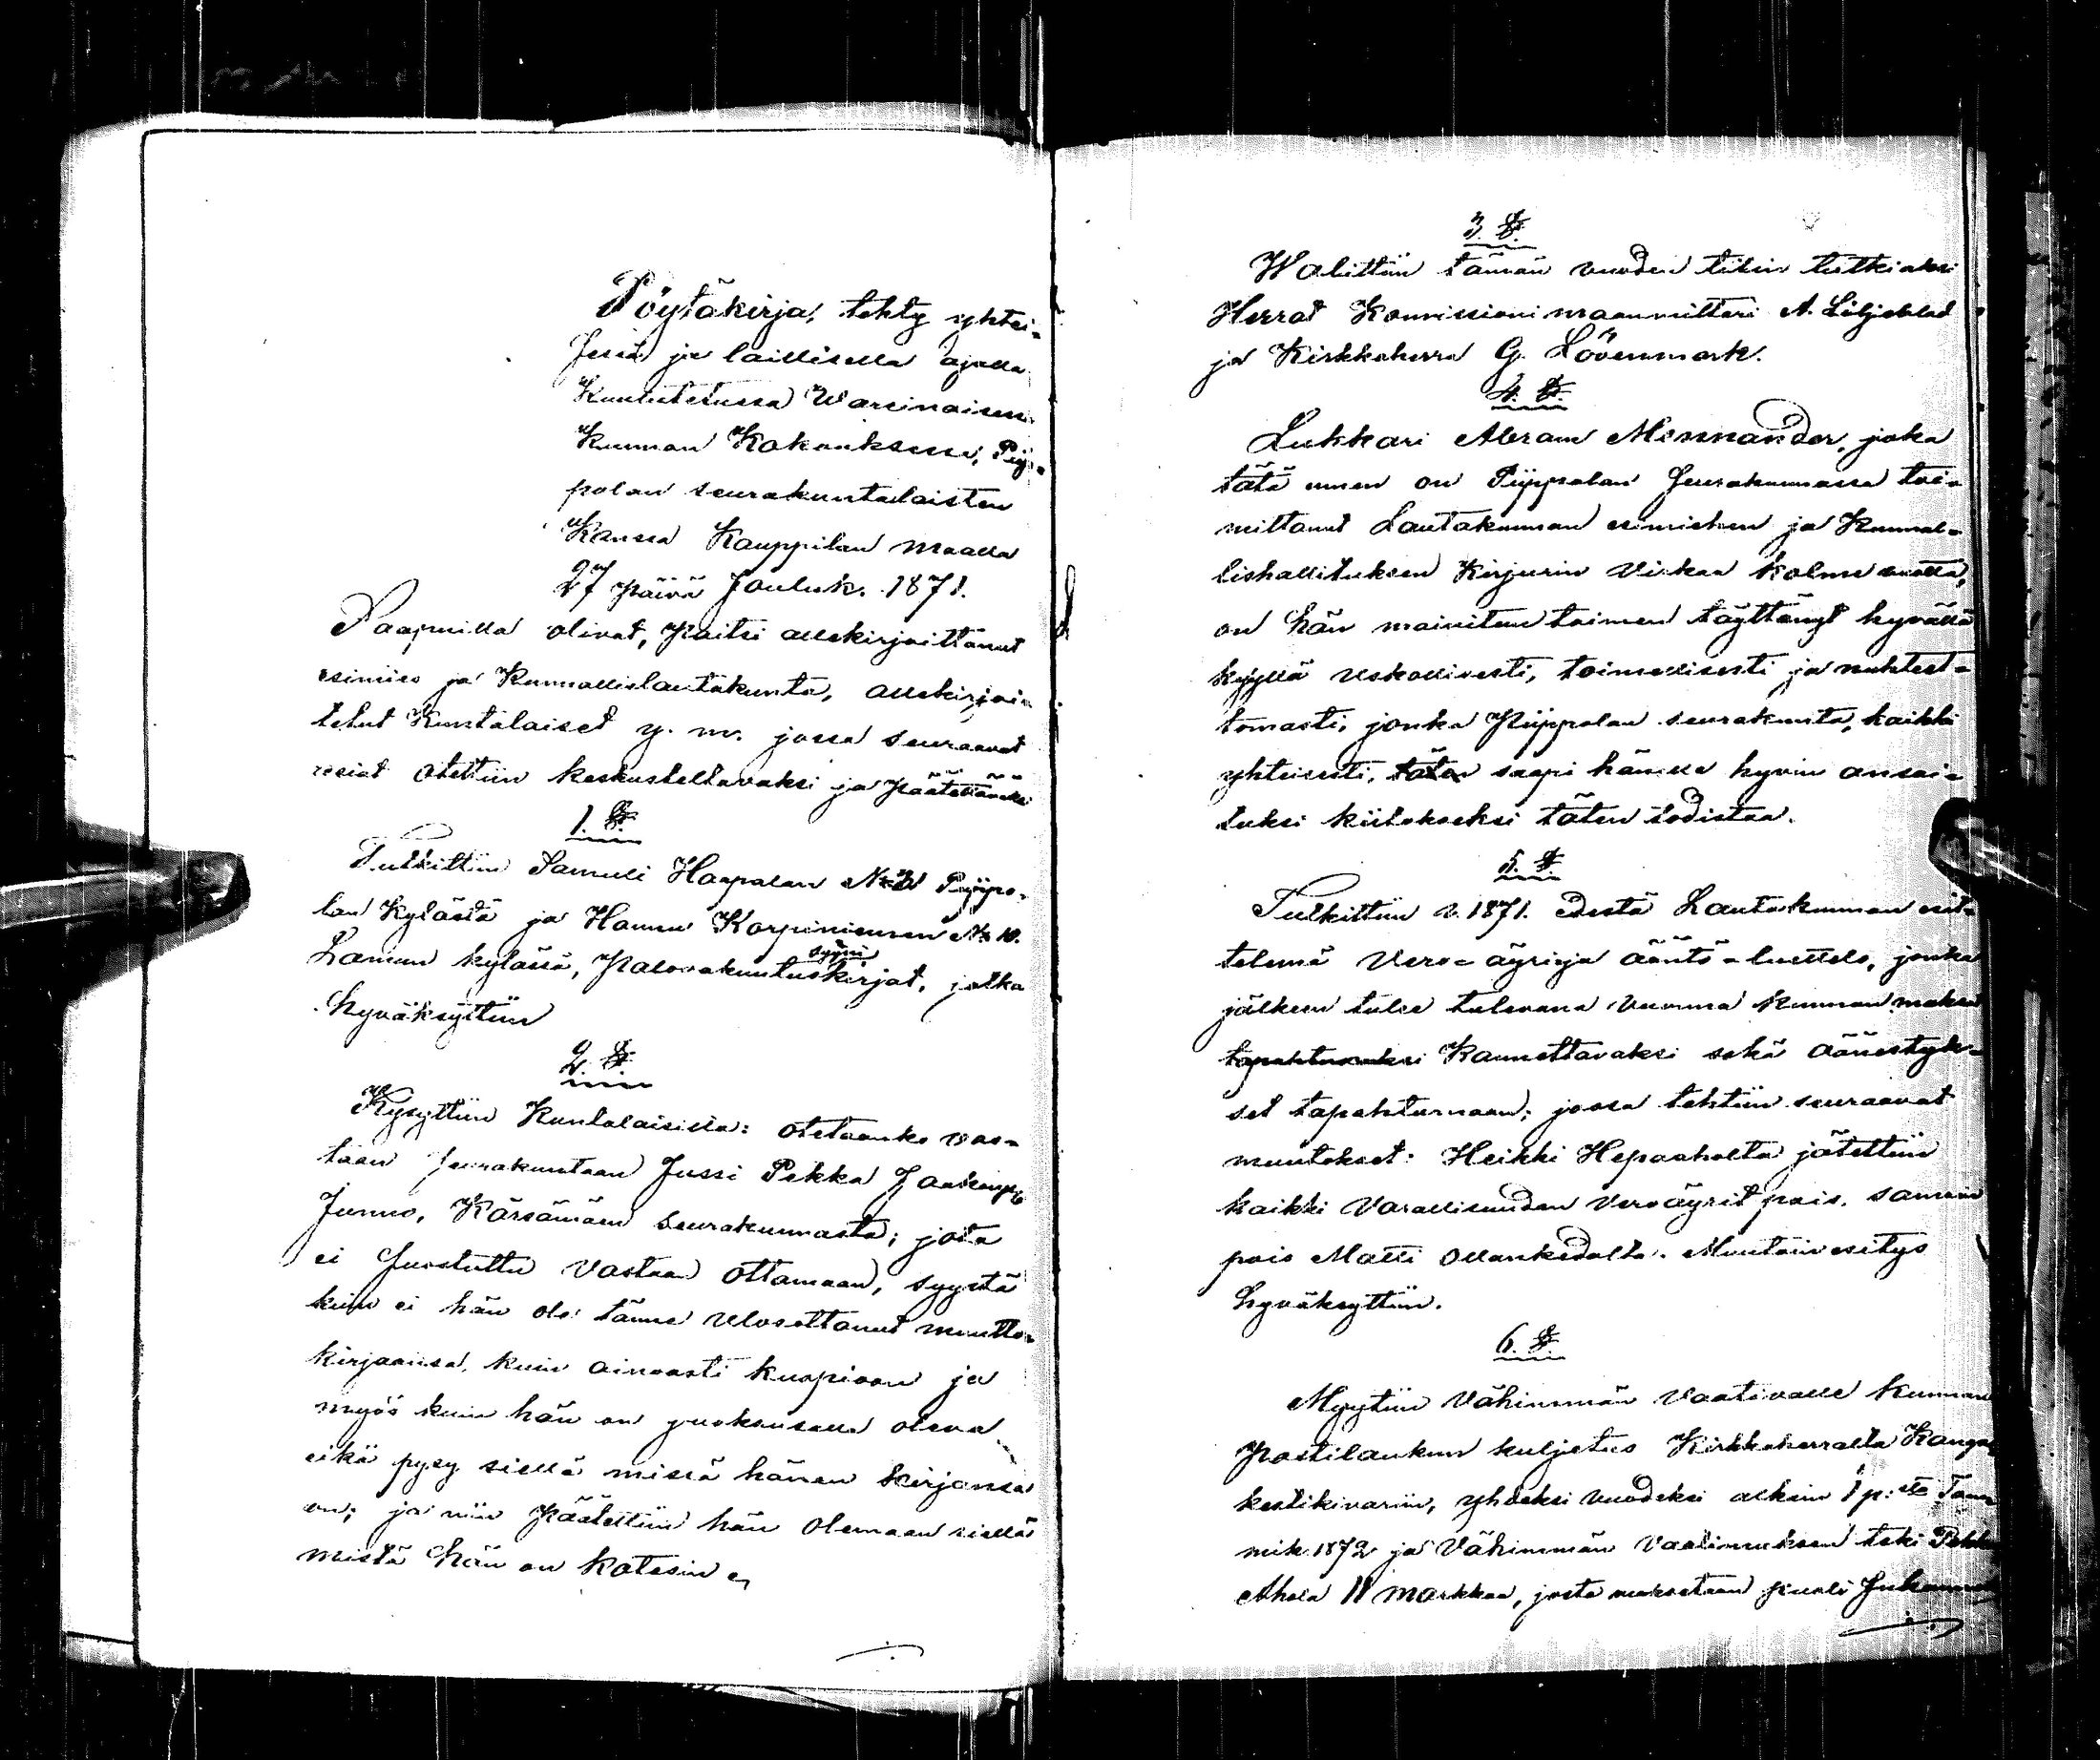 Pöytäkirja, tehty yhtei-
sesti ja laillisella ajalla
Kuulutetussa Warsinaisessa
Kunnan Kokouksessa, Piip-
polan seurakuntalaisten
Kanssa Kauppilan maalla
27 päivä Jouluk. 1871.
Saapuvilla olivat, paitsi allekirjoittanut
esimies ja Kunnallislautakunta, allekirjoi-
tetut Kuntalaiset y. m. jossa seuraavat
asiat otettiin keskusteltavaksi ja päätettäväksi
1. §.
Tutkittiin Samuli Haapalan No 21 Piippo-
lan Kylästä ja Hannu Karpiniemen No 10.
Lamun kylässä, Palovakuutus syyni kirjat, jotka
hyväksyttiin
2. §.
Kysyttiin Kuntalaisilla: otetaanko vas-
taan seurakuntaan Jussi Pekka Jaakonp.
Junno, Kärsämäen seurakunnasta; jota
ei suostuttu vastaan ottamaan, syystä
kuin ei hän ole tänne ulosottanut muutto-
kirjaansa, kuin ainoasti kuopioon ja
myös kuin hän on juoksusalla oleva
eikä pysy siellä missä hänen kirjansa
on; ja niin päätettiin hän olemaan siellä
mistä hän on kotosin
3. §.
Walittiin tämän vuoden tilin tutkiaksi
Herrat Komissioni maanmittari A. Liljeblad
ja Kirkkoherra G. Lövenmark.
4. §.
Lukkari Abram Mennander, joka
tätä ennen on Piippolan Seurakunnassa toi-
mittanut Lautakunnan esimiehen ja Kunnal-
lishallituksen Kirjurin virkaa kolme vuotta,
on hän mainitun toimen täyttänyt hyvällä
kyyllä uskollisesti, toimellisesti ja nuhteet-
tomasti, jonka Piippolan seurakunta, kaikki
yhteisesti, täten saapi hänelle hyvin ansai-
tuksi kiitokseksi täten todistaa.
5. §.
Tutkittiin v. 1871. edestä Lautakunnan esit-
telemä Vero-äyri ja ääntö-luettelo, jonka
jälkeen tulee tulevana vuonna Kunnan maksut
tapahtuvaksi Kannettavaksi sekä äänestyk-
set tapahtumaan; jossa tehtiin seuraavat
muutokset: Heikki Hepoaholta jätettiin
kaikki Varallisuuden Veroäyrit pois. samoin
pois Matti Ollankedolta. Muutoin esitys
hyväksyttiin.
6. §.
Myytiin Vähimmän Vaativalle Kunnan
Postilaukun kuljetus Kirkkoherralta Kangas
kestikivariin, yhdeksi vuodeksi alkain 1 p:stä Tam-
mik. 1872 ja Vähimmän Vaatimuksen teki Pekka
Ahola 11 Markkaa, josta maksetaan puoli Juhannuk